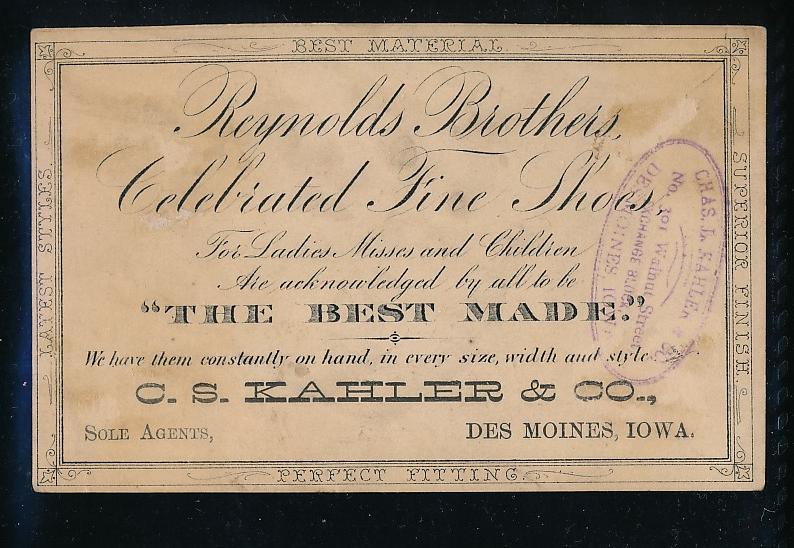 BEST MATERIAL.
LATEST STYLES.
SUPERIOR FINISH.
Reynolds Brothers,
Celebrated Fine Shoes,
For Ladies Misses and Children
Are acknowledged by all to be
"THE BEST MADE."
We have them constantly on hand, in every size, width and style
C. S. KAHLER & CO.,
SOLE AGENTS,
DES MOINES, IOWA.
PERFECT FITTING.
CHAS. L. KAHLER & CO.
No. 301 Walnut Street
EXCHANGE BLOCK
DES MOINES, IOWA